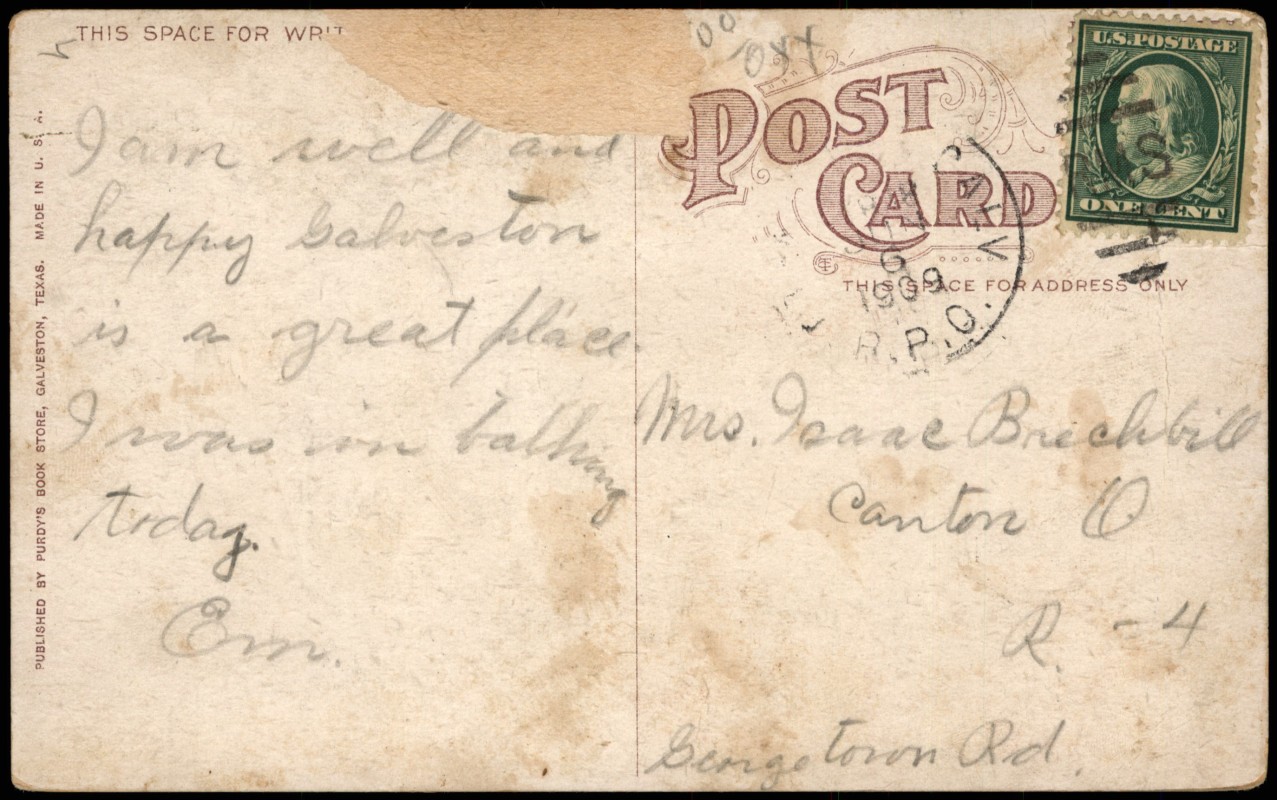 THIS SPACE FOR WRIT
I am well and
happy Galveston
is a great place.
I was in bathing
today.
Em.
PUBLISHED BY PURDY'S BOOK STORE, GALVESTON, TEXAS. MADE IN U. S. A.
POST
CARD
THIS SPACE FOR ADDRESS ONLY
U.S. POSTAGE
ONE CENT
RMS
GALV
6
1909
R.P.O.
Mrs. Isaac Brechbill
Canton O
R. - 4
Georgetown Rd.